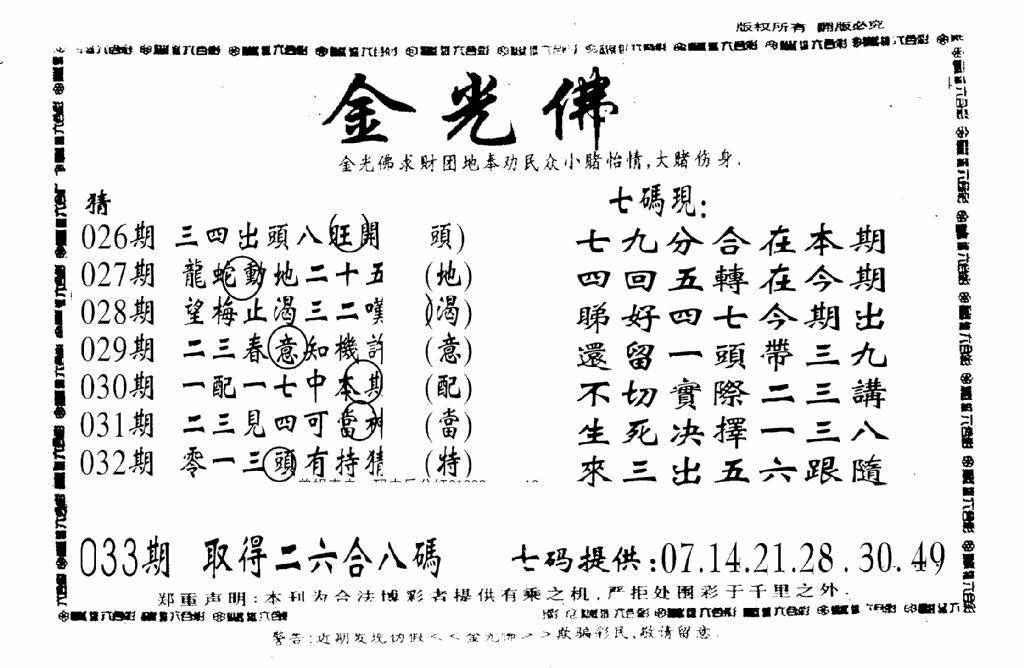 版权所有 翻版必究
金光佛
金光佛求财团地奉劝民众小赌怡情,大赌伤身.
猜
026期 三四出頭八旺開 頭)
027期 龍蛇動地二十五 (地)
028期 望梅止渴三二嘆 (渴)
029期 二三春意知機許 (意)
030期 一配一七中本期 (配)
031期 二三見四可當神 (當)
032期 零一三頭有持猜 (特)
七碼現:
七九分合在本期
四回五轉在今期
睇好四七今期出
還留一頭帶三九
不切實際二三講
生死决擇一三八
來三出五六跟隨
033期 取得二六合八碼 七码提供:07.14.21.28.30.49
郑重声明:本刊为合法博彩者提供有乘之机,严拒处围彩于千里之外.
警告:近期发现伪假<<金光佛>>欺骗彩民,敬请留意.